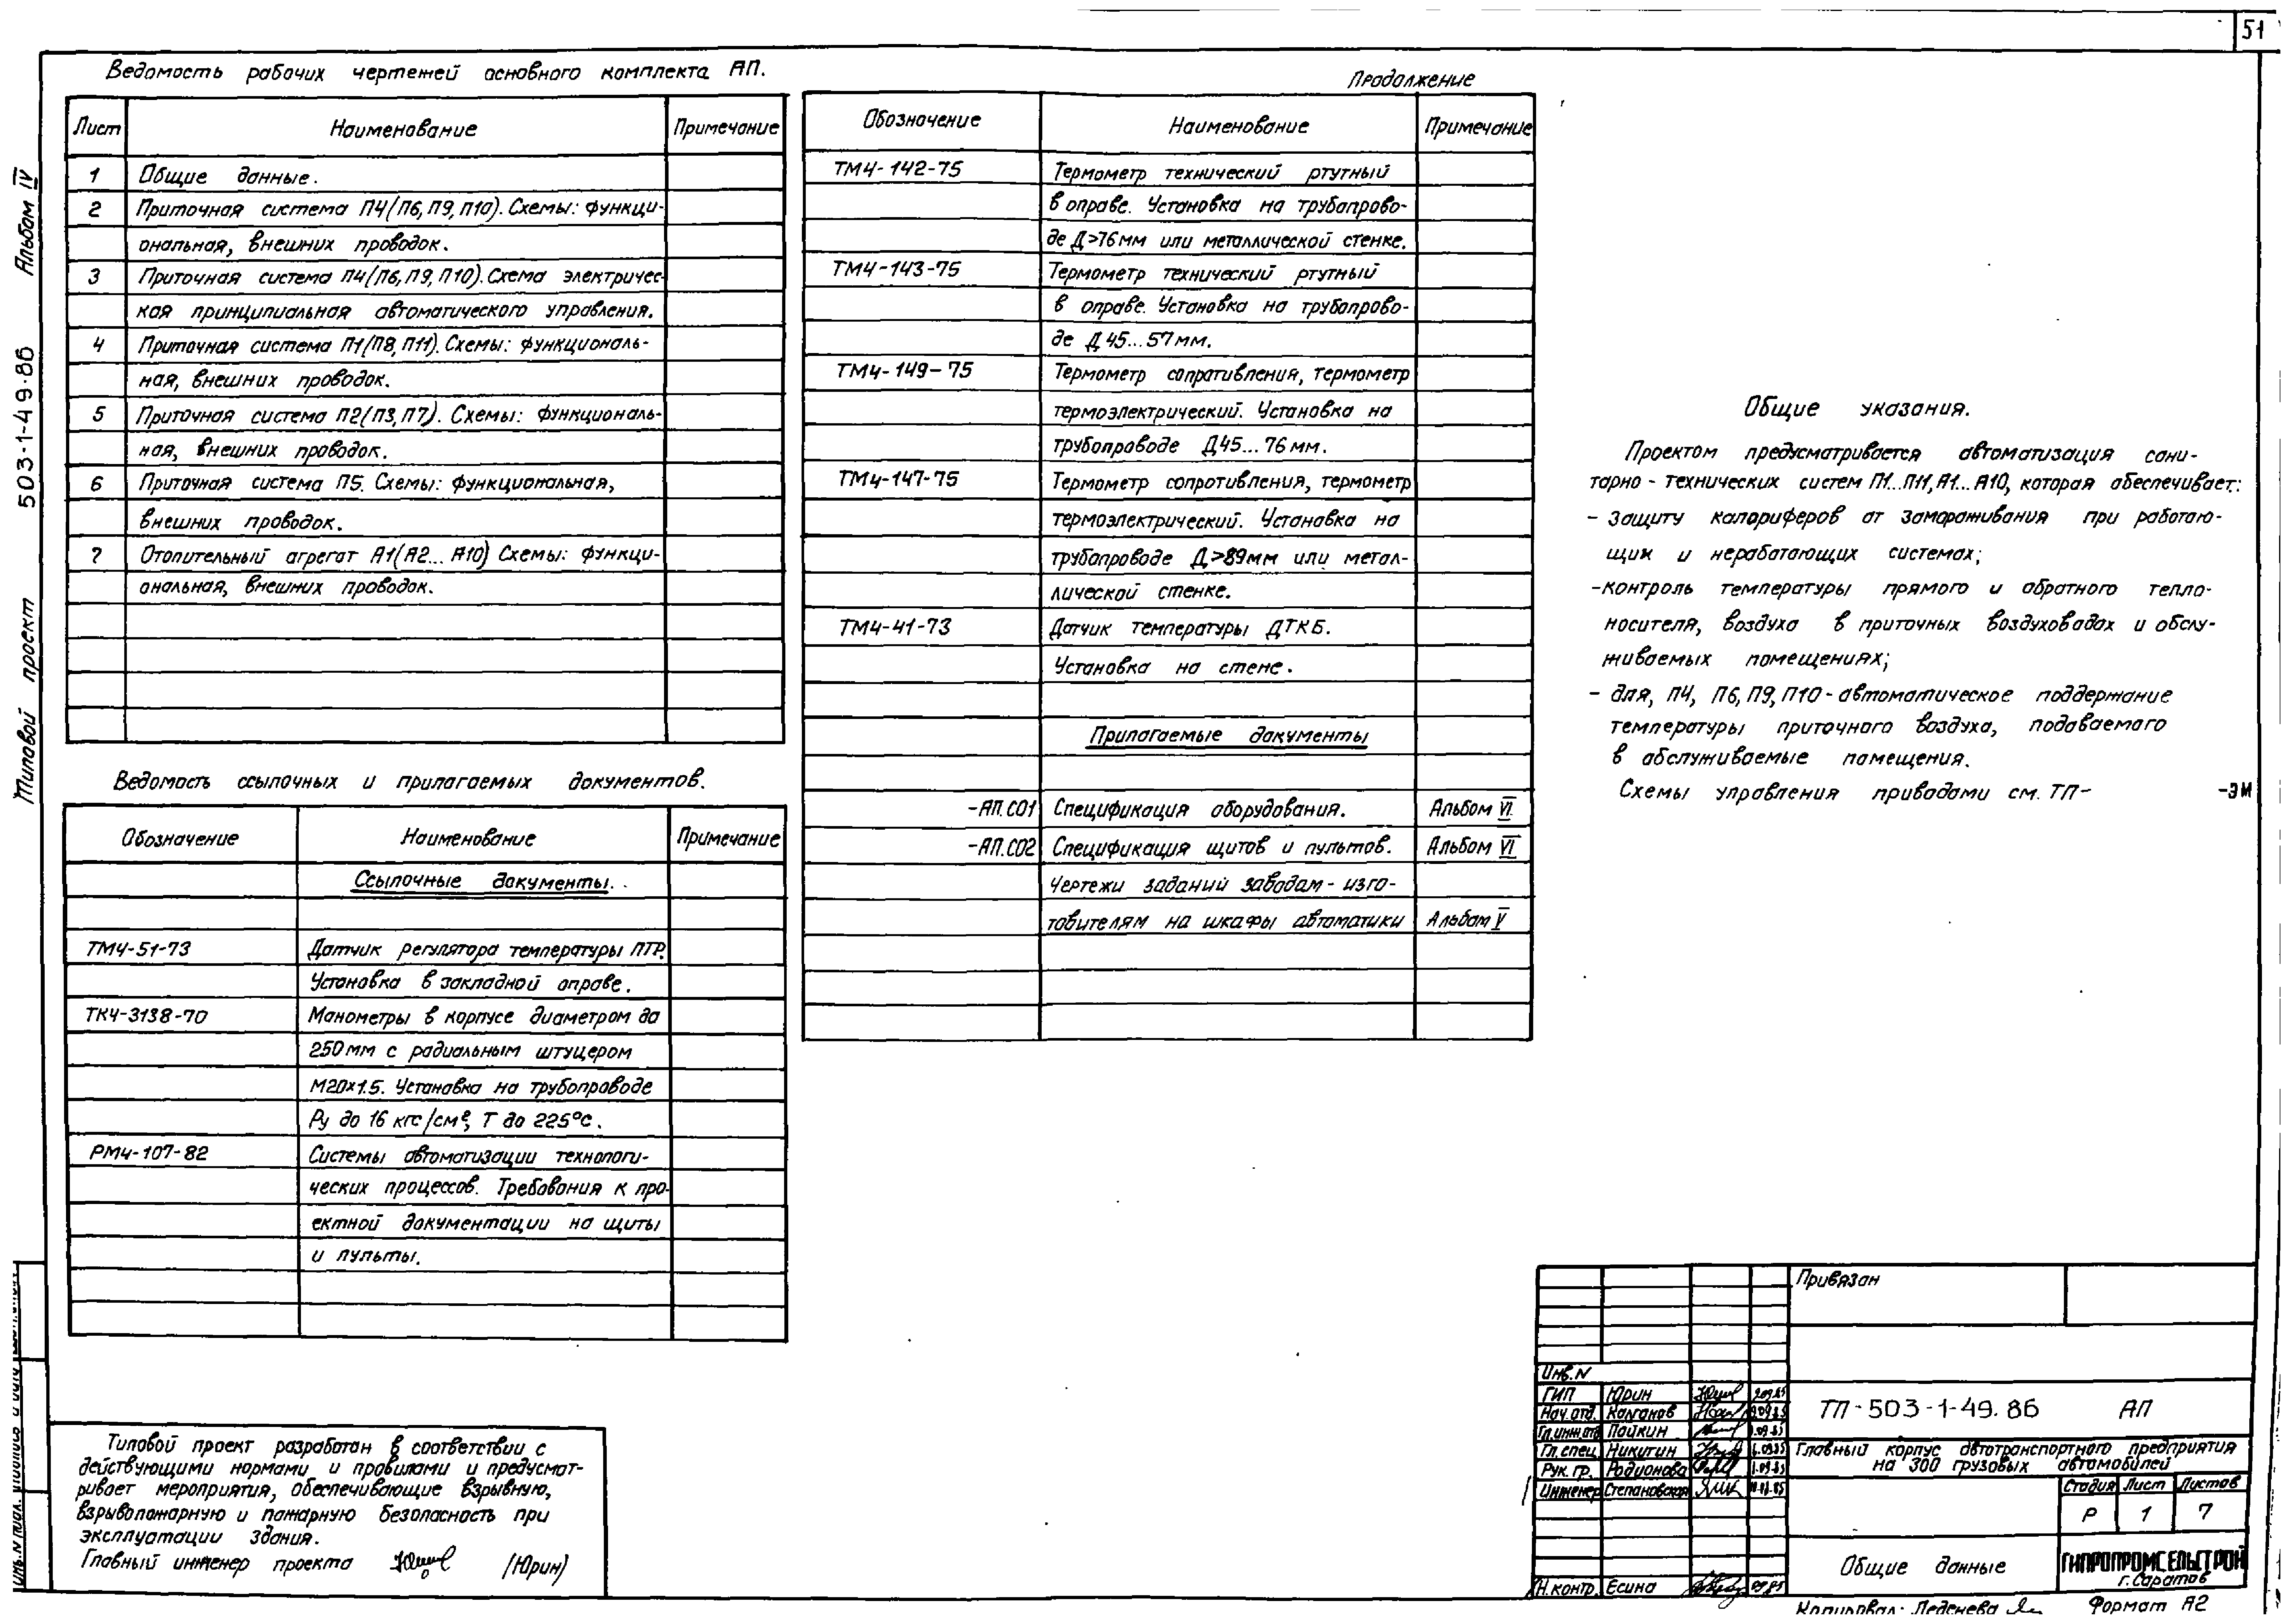 51
Альбом IV
503-1-49·86
Типовой проект
Ведомость рабочих чертежей основного комплекта АП.
Лист Наименование Примечание
1 Общие данные.
2 Приточная система П4(П6, П9, П10). Схемы: функци-
ональная, внешних проводок.
3 Приточная система П4(П6, П9, П10). Схема электричес-
кая принципиальная автоматического управления.
4 Приточная система П1(П8, П11). Схемы: функциональ-
ная, внешних проводок.
5 Приточная система П2(П3, П7). Схемы: функциональ-
ная, внешних проводок.
6 Приточная система П5. Схемы: функциональная,
внешних проводок.
7 Отопительный агрегат А1(А2... А10) Схемы: функци-
ональная, внешних проводок.
Ведомость ссылочных и прилагаемых документов.
Обозначение Наименование Примечание
Ссылочные документы.
ТМ4-51-73 Датчик регулятора температуры ПТР.
Установка в закладной оправе.
ТК4-3138-70 Манометры в корпусе диаметром до
250мм с радиальным штуцером
М20×1.5. Установка на трубопроводе
Ру до 16 кгс/см², Т до 225°С.
РМ4-107-82 Системы автоматизации технологи-
ческих процессов. Требования к про-
ектной документации на щиты
и пульты.
Типовой проект разработан в соответствии с
действующими нормами и правилами и предусмат-
ривает мероприятия, обеспечивающие взрывную,
взрывопожарную и пожарную безопасность при
эксплуатации здания.
Главный инженер проекта (Юрин)
Продолжение
Обозначение Наименование Примечание
ТМ4-142-75 Термометр технический ртутный
в оправе. Установка на трубопрово-
де Д>76мм или металлической стенке.
ТМ4-143-75 Термометр технический ртутный
в оправе. Установка на трубопрово-
де Д 45...57мм.
ТМ4-149-75 Термометр сопротивления, термометр
термоэлектрический. Установка на
трубопроводе Д45...76мм.
ТМ4-147-75 Термометр сопротивления, термометр
термоэлектрический. Установка на
трубопроводе Д>89мм или метал-
лической стенке.
ТМ4-41-73 Датчик температуры ДТКБ.
Установка на стене.
Прилагаемые документы
-АП.СО1 Спецификация оборудования. Альбом VI
-АП.СО2 Спецификация щитов и пультов. Альбом VI
Чертежи заданий заводам-изго-
товителям на шкафы автоматики Альбом V
Общие указания.
Проектом предусматривается автоматизация сани-
тарно-технических систем П1...П11, А1...А10, которая обеспечивает:
- защиту калориферов от замораживания при работаю-
щих и неработающих системах;
-контроль температуры прямого и обратного тепло-
носителя, воздуха в приточных воздуховодах и обслу-
живаемых помещениях;
- для, П4, П6, П9, П10-автоматическое поддержание
температуры приточного воздуха, подаваемого
в обслуживаемые помещения.
Схемы управления приводами см. ТП- -ЭМ
Привязан
Инв.N
ГИП Юрин
Нач.отд. Калганов
Гл.инж.отд Пайкин
Гл.спец. Никитин
Рук.гр. Родионова
Инженер Степановская
Н.контр. Есина
ТП-503-1-49.86 АП
Главный корпус автотранспортного предприятия
на 300 грузовых автомобилей
Стадия Лист Листов
Р 1 7
Общие данные
ГИПРОПРОМСЕЛЬСТРОЙ
г.Саратов
Копировал: Леденева Формат А2